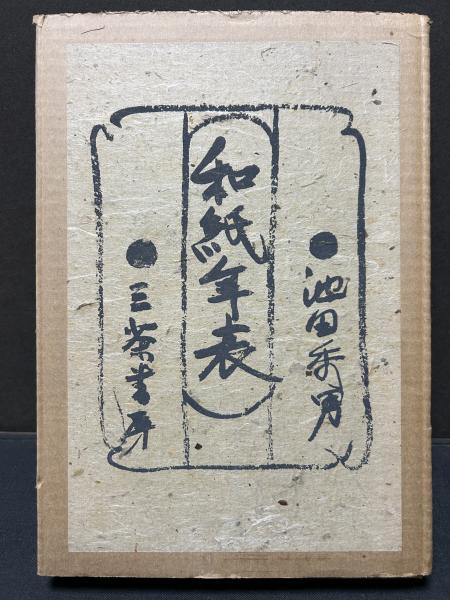 ●池田秀男
和紙年表
●三茶書房